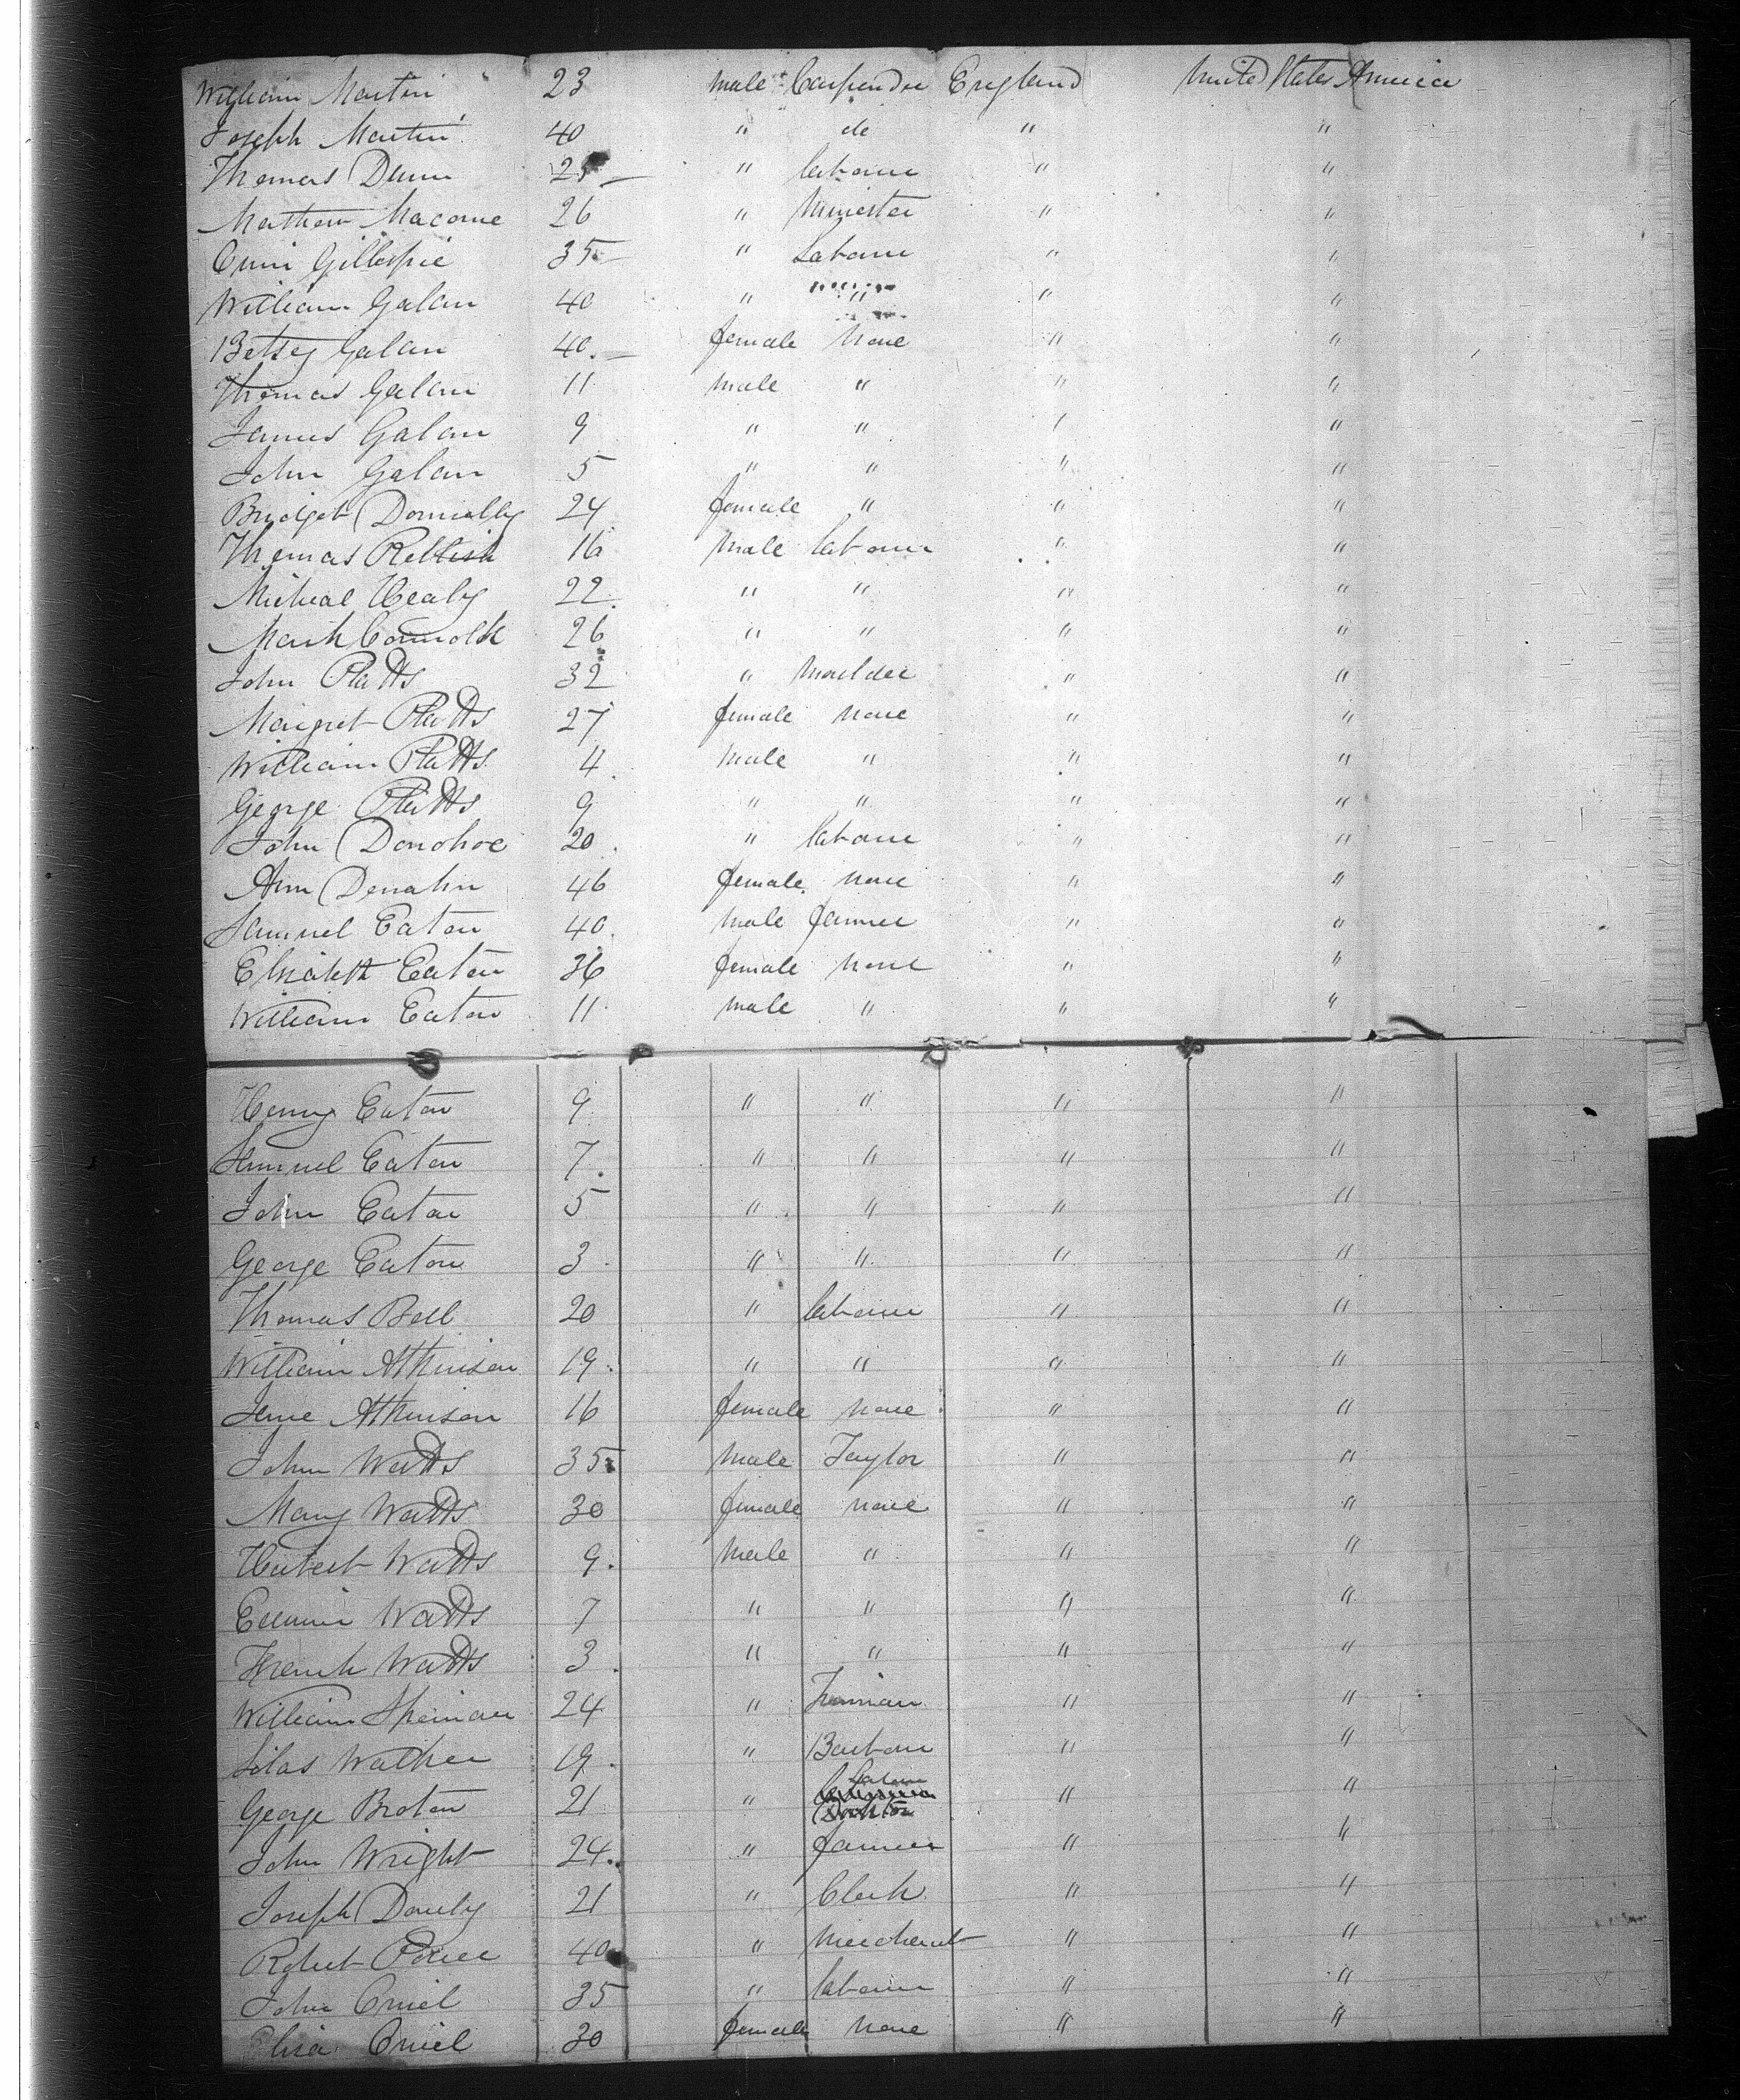 William Martin 23 male Carpender England United States America
Joseph Martin 40 " do " "
Thomas Dunn 25 " labour " "
Mathew Macome 26 " Minister " "
Gillespie 35 " Labour " "
William Galan 40 " " " "
Betsey Galan 40 female None " "
Thomas Galan 11 male " " "
James Galan 9 " " " "
John Galan 5 " " " "
Bridget Donnally 24 female " " "
Thomas 16 male labour " "
Micheal Healy 22 " " " "
Mark 26 " " " "
John Platts 32 " Moulder " "
Margret Platts 27 female none " "
William Platts 4 male " " "
George Platts 9 " " " "
John Donohoe 20 " labour " "
Ann 46 female none " "
Samuel Eaton 40 male farmer " "
Elizabeth Eaton 36 female none " "
William Eaton 11 male " " "
Henry Eaton 9 " " " "
Samuel Eaton 7 " " " "
John Eaton 5 " " " "
George Eaton 3 " " " "
Thomas Bell 20 " labour " "
William Atkinson 19 " " " "
Jane Atkinson 16 female none " "
John Watts 35 male Taylor " "
Mary Watts 30 female none " "
Watts 9 male " " "
Watts 7 " " " "
Frank Watts 3 " " " "
William 24 " " "
Silas Walker 19 " " "
George Broton 21 " Labour " "
John Wright 24 " farmer " "
Joseph 21 " Clerk " "
Robert 40 " Merchant " "
John Oniel 35 " labour " "
Eliza Oniel 30 female none " "